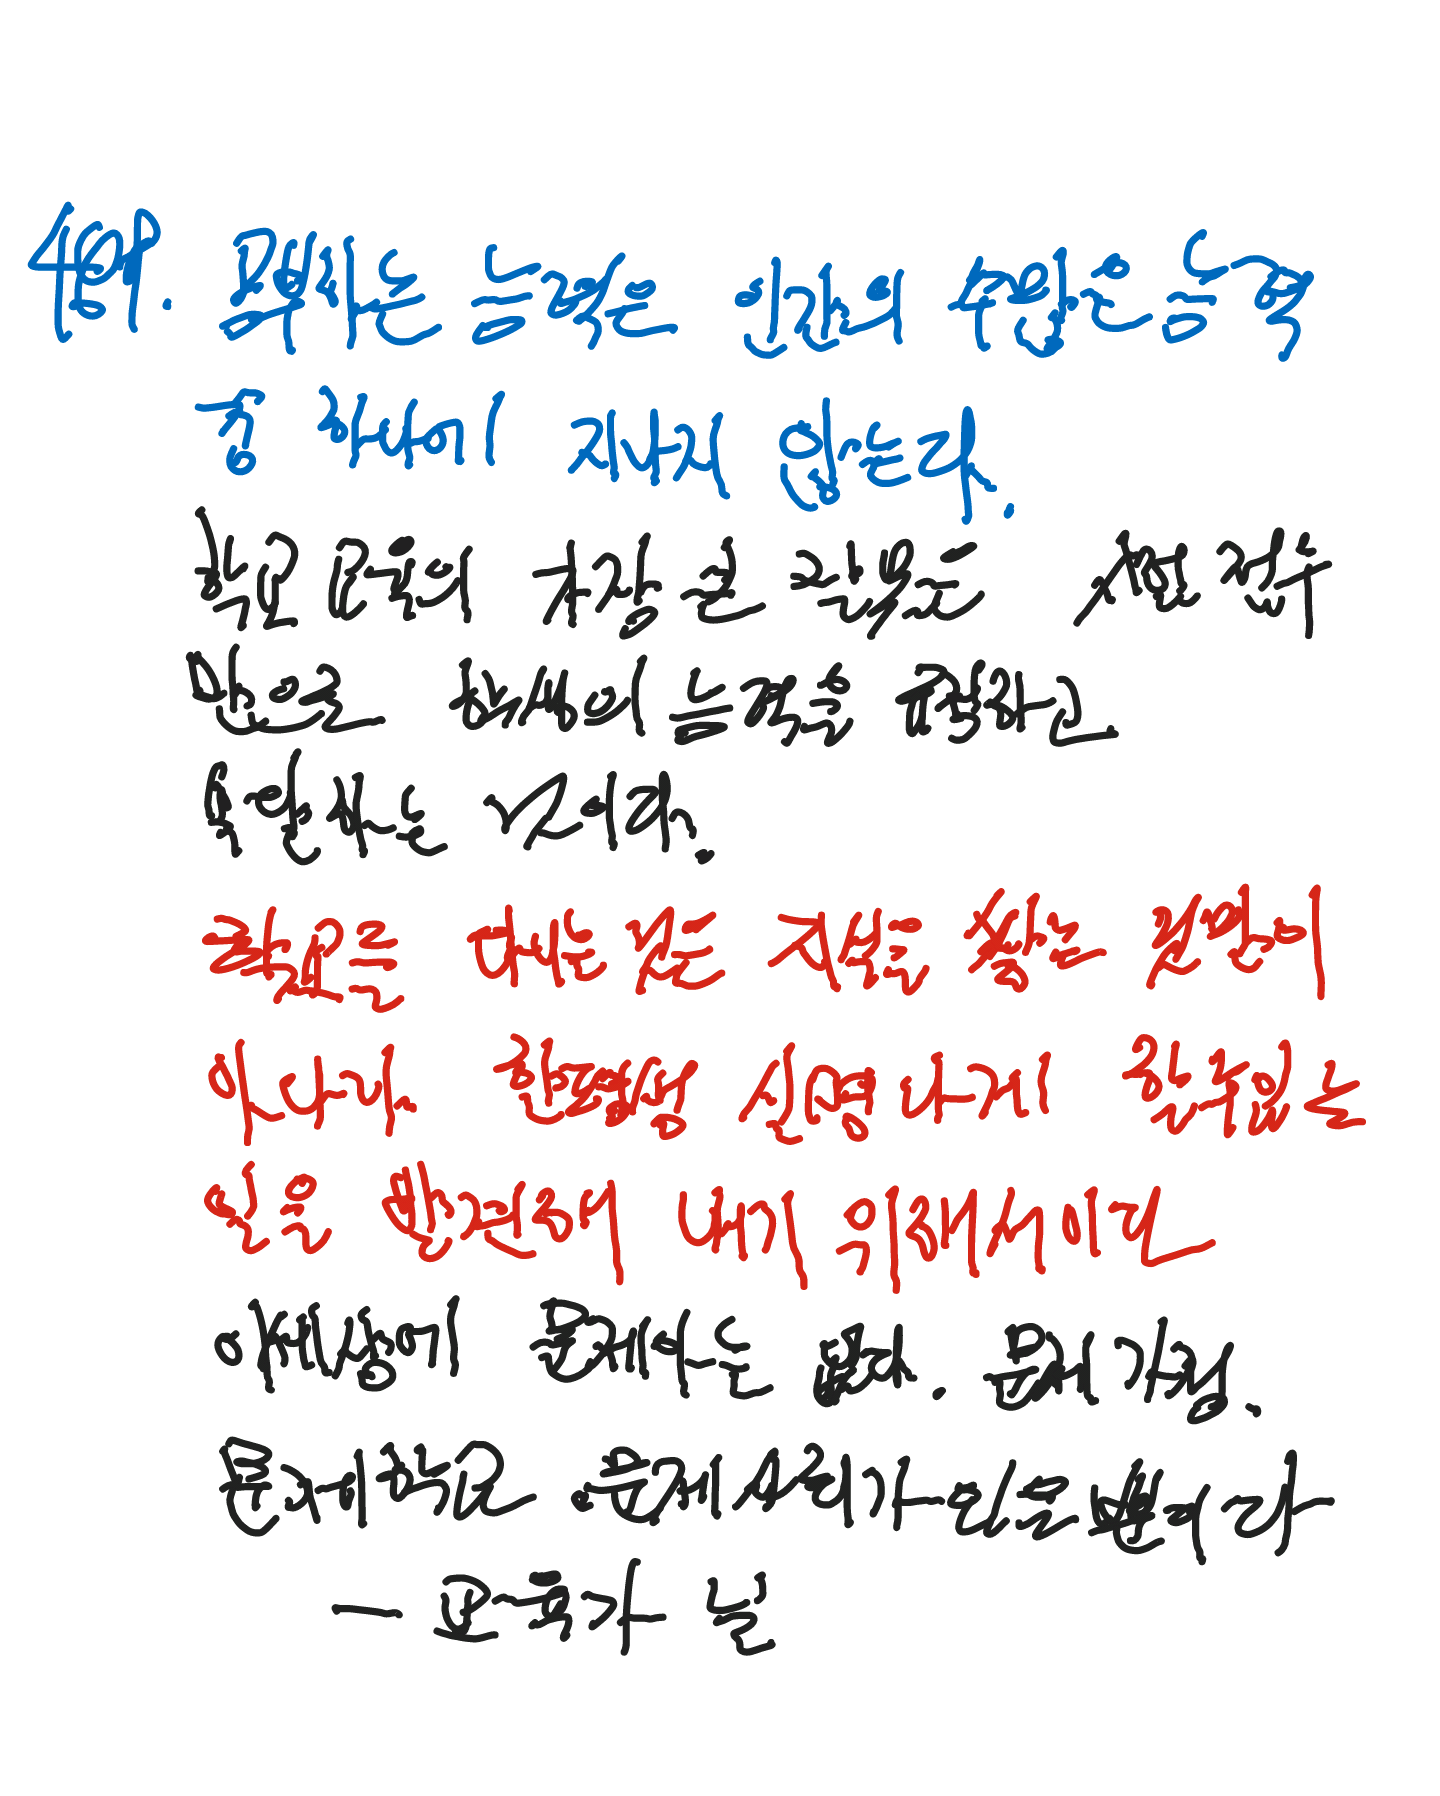 489. 공부하는 능력은 인간의 수많은 능력
중 하나에 지나지 않는다.
학교교육의 가장 큰 잘못은 시험 점수
만으로 학생의 능력을 규정하고
속단하는 것이다.
학교를 다니는 것은 지식을 쌓는 것만이
아니라 한평생 신명나게 할 수 있는
일을 발견해 내기 위해서이다
이세상에 문제아는 없다. 문제가정.
문제학교 문제사회가 있을뿐이다
— 교육가 닐